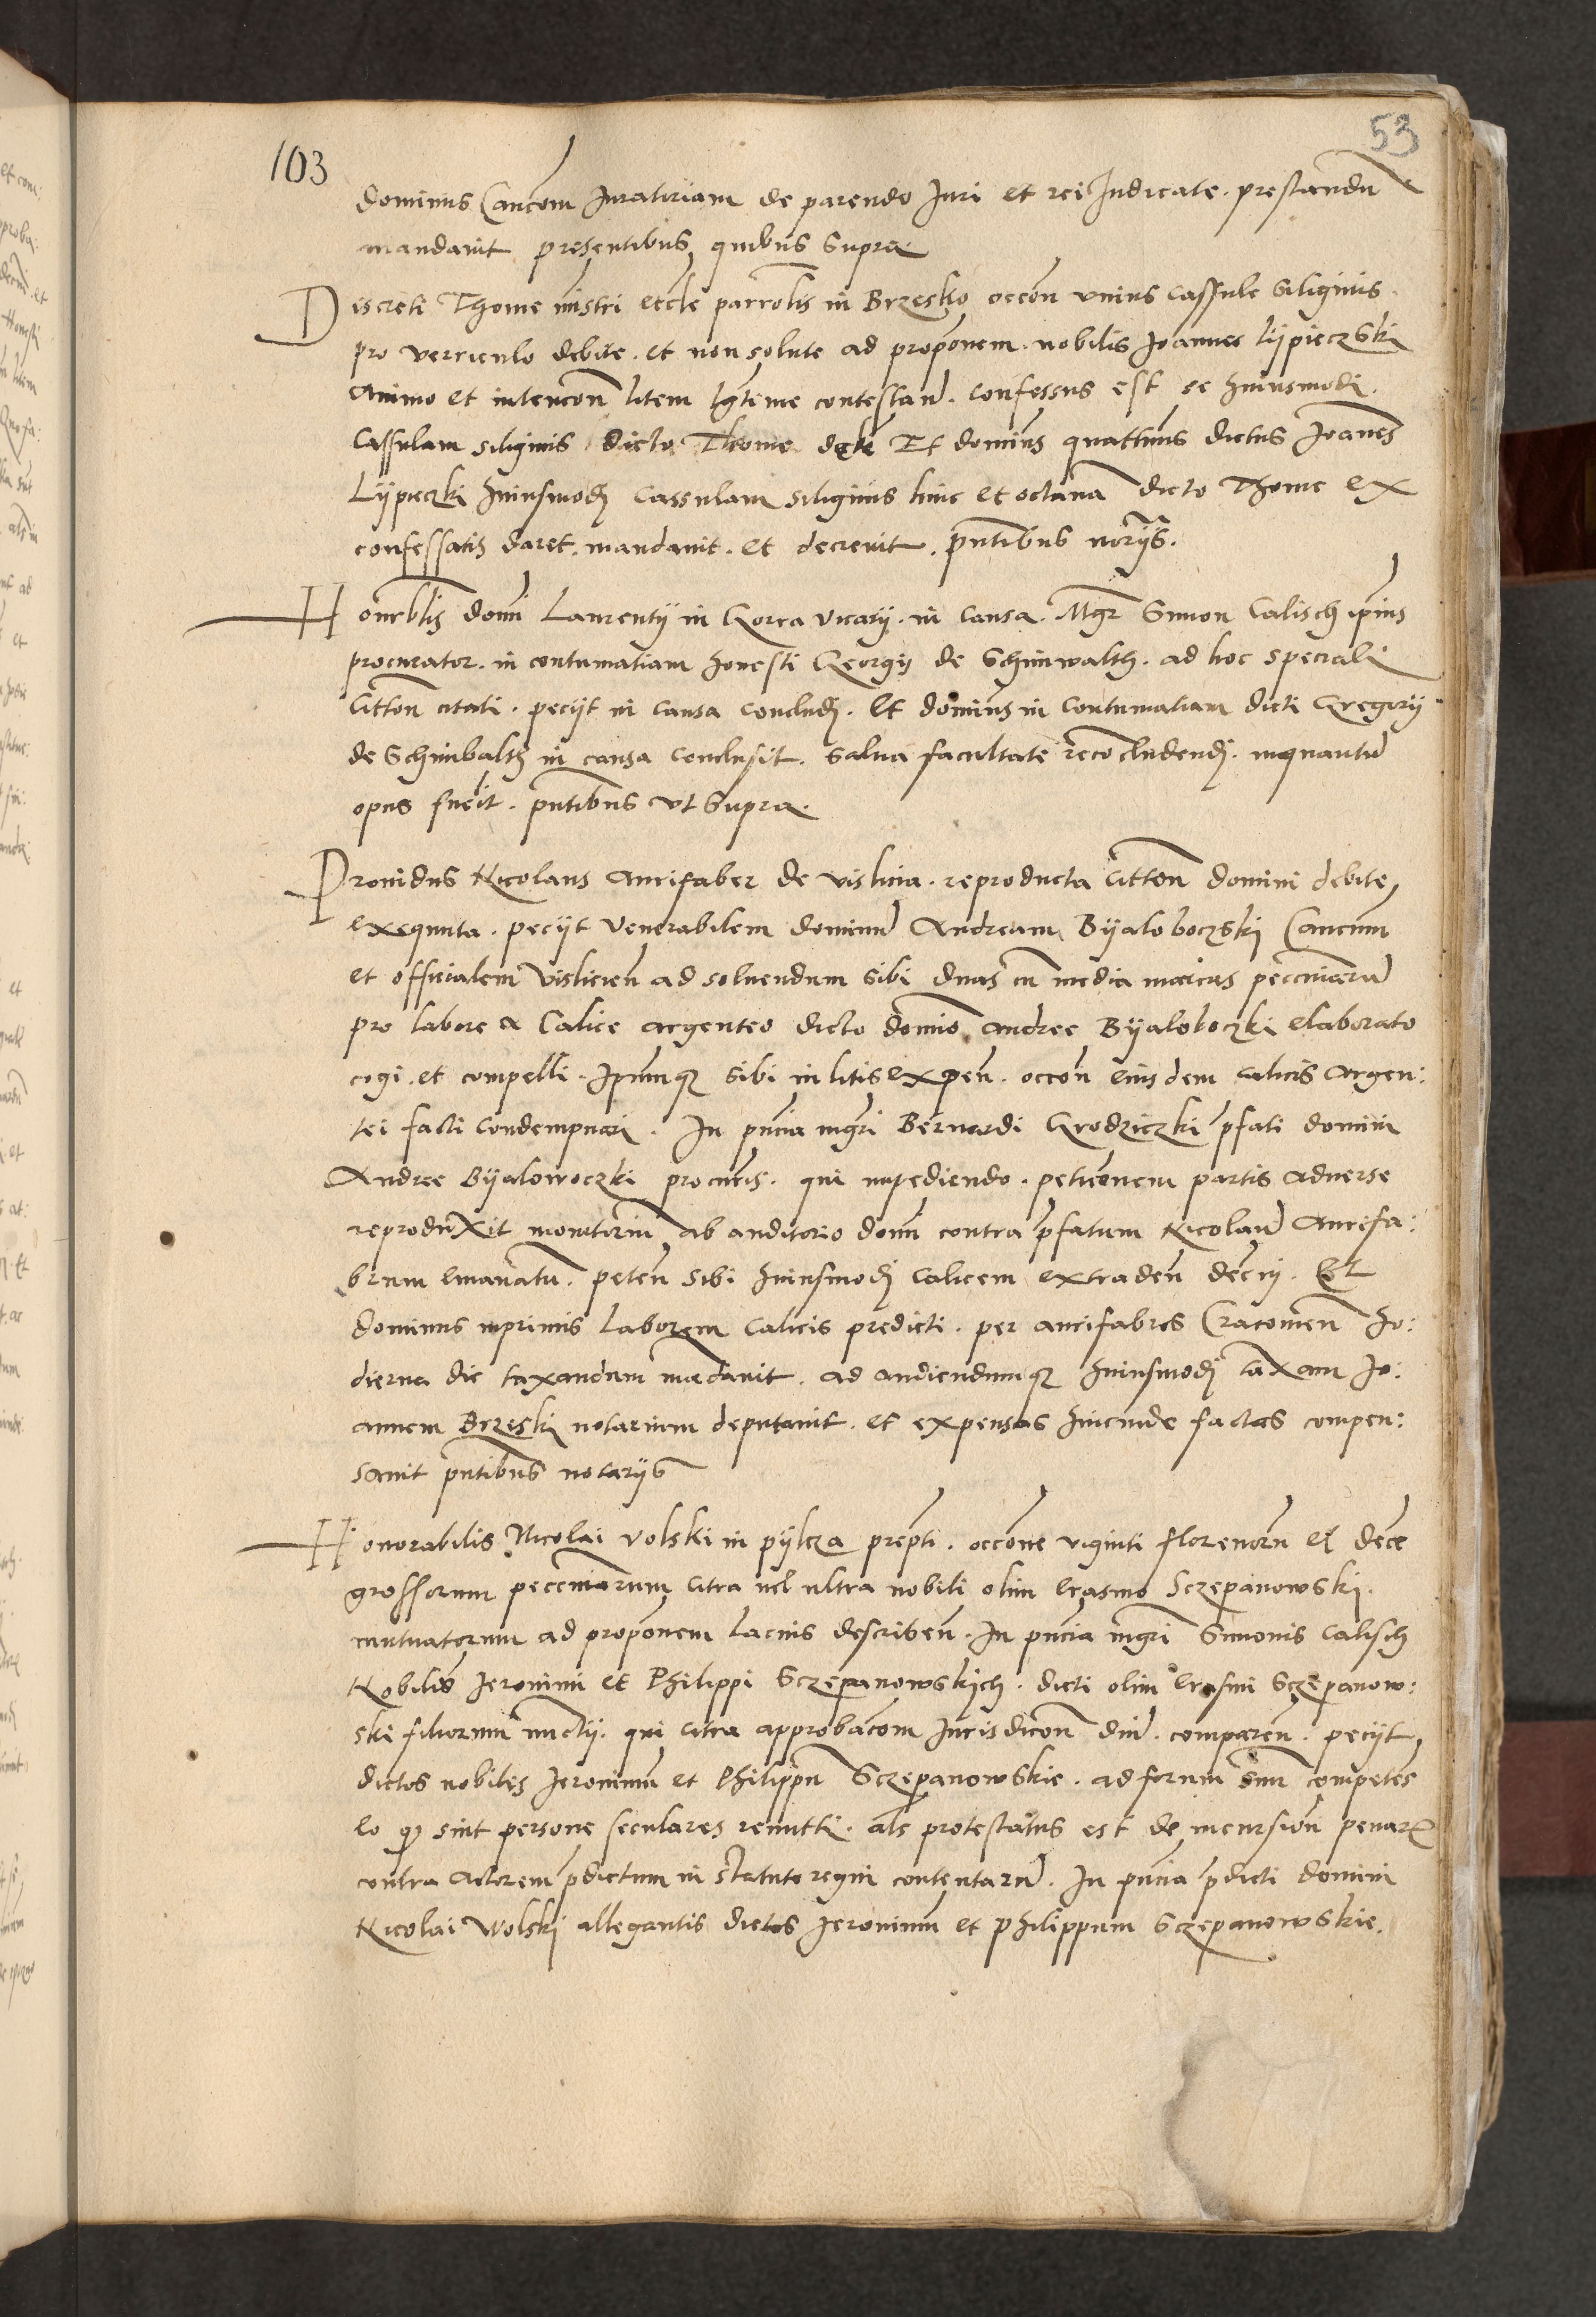 103
53
dominus Caucom Juratoriam de parendo Juri et rei Judicate . prestandu
mandauit presentibus quibus supra
Discreti Thome mistri eccle parrolis in Brzesko occon vnius cassule siliginis .
pro verrienlo debite . et non solute ad proponem . nobilis Joannes Lijpieczski
Animo et intencon litem lgtime contestan . confessus est se huiusmodi .
Cassulam siliginis dicto Thome Et dominus quattinus dictus Joanes
Lijpieczki huiusmodi cassulam siliginis hinc et octaua dicto Thome ex
confessatis daret . mandauit . et decreuit . pntibus norijs .
Honeblis domi Laurentij in Gorra vicarij . in causa . Mgr Simon Calisch ipius
procurator . in contumatiam honesti Georgij de Schinwalth . ad hoc speciali
Citton citati . pecijt in causa concludj . Et dominus in contumatiam dicti Gregorij
de Schinbalth in causa conclusit . salua facultate reconcludendj . inquantu
opus fuerit . pntibus vt supra .
Prouidus Nicolaus Aurifaber de vislicia . reproducta Citton domini debite
exequuta . pecijt venerabilem dominu Andream Bijaloboczski Canonicum
et officialem vislicien ad soluendum sibi duas cu media marcas pecuniaru
pro labore a Calice argenteo dicto domio andree Bijaloboczki elaborato
cogi . et compelli . Ipumq sibi in litis expen . occon eiusdem calicis argen:
tei facti condempnari . In pncia mgri Bernardi Grodziczki pfati domini
Andree Bijalowoczki procuris . qui impediendo . peticonem partis aduerse
reproduxit monitoriu ab auditorio domi contra pfatum Nicolau Aurifa:
brum emanatu . peten sibi huiusmodj calicem extraden decerni . Et
dominus inprimis laborem calicis predicti . per aurifabros Cracouien ho:
dierna die taxandum madauit . ad audiendumq huiusmodj taxam Jo:
annem Brzeski notarium deputauit . et expensas hincinde factas compen:
sauit pntibus notarijs
Honorabilis Nicolai volski in pijlcza prepti . occone viginti florenoru et dece
grossorum pecuniarum citra uel ultra nobili olim Erasmo Sczepanowski .
mutuatorum ad proponem lacius describen . In pncia mgri Simonis Calisch
Nobiliu Jeronimi et Philippi Sczepanowskich . dicti olim Erasmi Sczepanow:
ski filiorum nuctij . qui citra approbacom Jurisdicon dni . comparen . pecijt
dictos nobiles Jeronimu et Philippu Sczepanowskie . ad forum suu competes
eo q sint persone seculares remitti . als protestatus est de incursion penaru
contra Actorem pdictum in statuto regni contentaru . In pncia pdicti domini
Nicolai Wolski allegantis dictos Jeronimu et philippum Sczepanowskie .